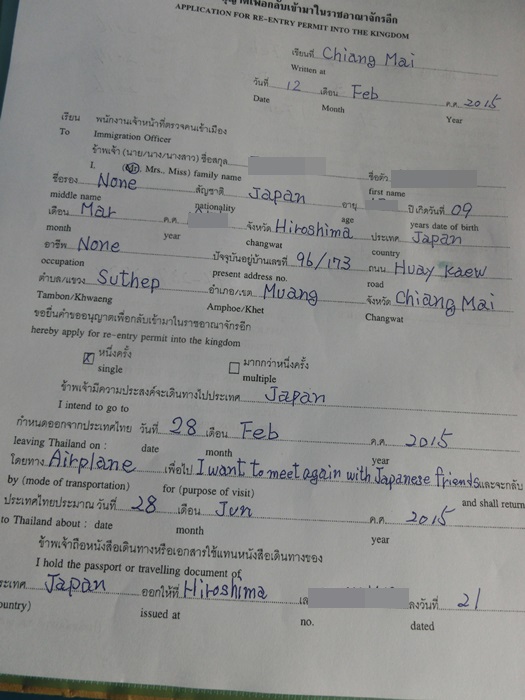 ญาตเพื่อกลับเข้ามาในราชอาณาจักรอีก
APPLICATION FOR RE-ENTRY PERMIT INTO THE KINGDOM
เขียนที่ Chiang Mai
Written at
วันที่ 12 เดือน Feb ค.ศ. 2015
Date Month Year
เรียน พนักงานเจ้าหน้าที่ตรวจคนเข้าเมือง
To Immigration Officer
ข้าพเจ้า (นาย/นาง/นางสาว) ชื่อสกุล ชื่อตัว
I. (Mr., Mrs., Miss) family name first name
ชื่อรอง None สัญชาติ Japan อายุ ปี เกิดวันที่ 09
middle name nationality age years date of birth
เดือน Mar ค.ศ. จังหวัด Hiroshima ประเทศ Japan
month year changwat country
อาชีพ None ปัจจุบันอยู่บ้านเลขที่ 96/173 ถนน Huay Kaew
occupation present address no. road
ตำบล/แขวง Suthep อำเภอ/เขต Muang จังหวัด Chiang Mai
Tambon/Khwaeng Amphoe/Khet Changwat
ขอยื่นคำขออนุญาตเพื่อกลับเข้ามาในราชอาณาจักรอีก
hereby apply for re-entry permit into the kingdom
หนึ่งครั้ง มากกว่าหนึ่งครั้ง
single multiple
ข้าพเจ้ามีความประสงค์จะเดินทางไปประเทศ Japan
I intend to go to
กำหนดออกจากประเทศไทย วันที่ 28 เดือน Feb ค.ศ. 2015
leaving Thailand on : date month year
โดยทาง Airplane เพื่อไป I want to meet again with Japanese friends และจะกลับ
by (mode of transportation) for (purpose of visit) and shall return
ประเทศไทยประมาณ วันที่ 28 เดือน Jun ค.ศ. 2015
to Thailand about : date month year
ข้าพเจ้าถือหนังสือเดินทางหรือเอกสารใช้แทนหนังสือเดินทางของ
I hold the passport or travelling document of,
ระเทศ Japan ออกให้ที่ Hiroshima เล ลงวันที่ 21
ountry) issued at no. dated